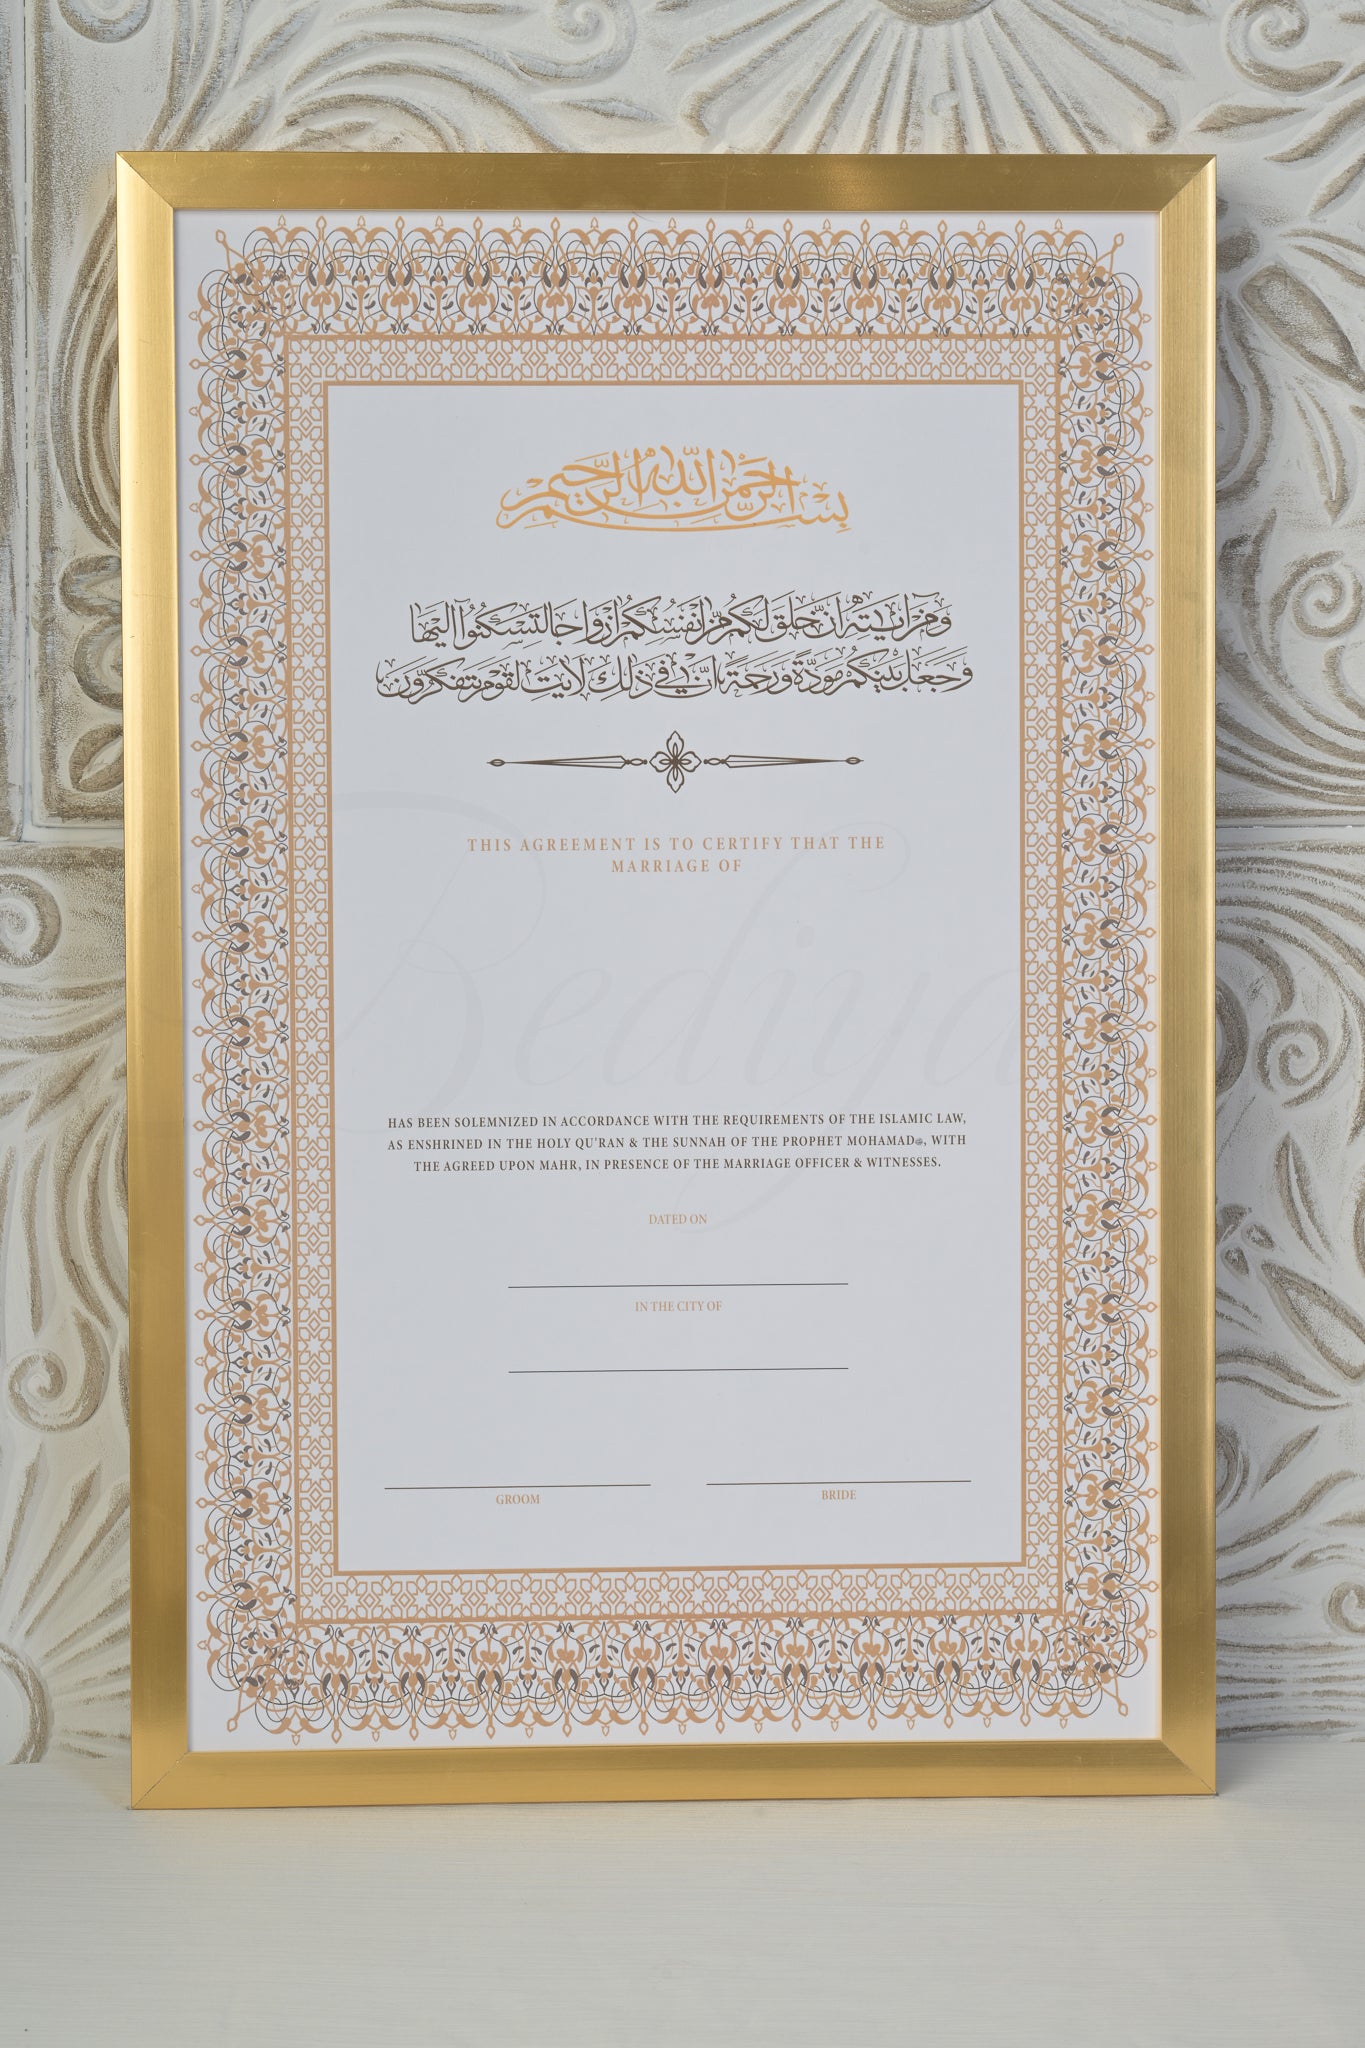 بِسْمِ اللَّهِ الرَّحْمَٰنِ الرَّحِيمِ
وَمِنْ اٰيٰتِهٖٓ اَنْ خَلَقَ لَكُمْ مِّنْ اَنْفُسِكُمْ اَزْوَاجًا لِّتَسْكُنُوْٓا اِلَيْهَا
وَجَعَلَ بَيْنَكُمْ مَّوَدَّةً وَّرَحْمَةً ۗ اِنَّ فِيْ ذٰلِكَ لَاٰيٰتٍ لِّقَوْمٍ يَّتَفَكَّرُوْنَ
THIS AGREEMENT IS TO CERTIFY THAT THE
MARRIAGE OF
Bediya
HAS BEEN SOLEMNIZED IN ACCORDANCE WITH THE REQUIREMENTS OF THE ISLAMIC LAW,
AS ENSHRINED IN THE HOLY QU'RAN & THE SUNNAH OF THE PROPHET MOHAMADﷺ, WITH
THE AGREED UPON MAHR, IN PRESENCE OF THE MARRIAGE OFFICER & WITNESSES.
DATED ON
IN THE CITY OF
GROOM BRIDE